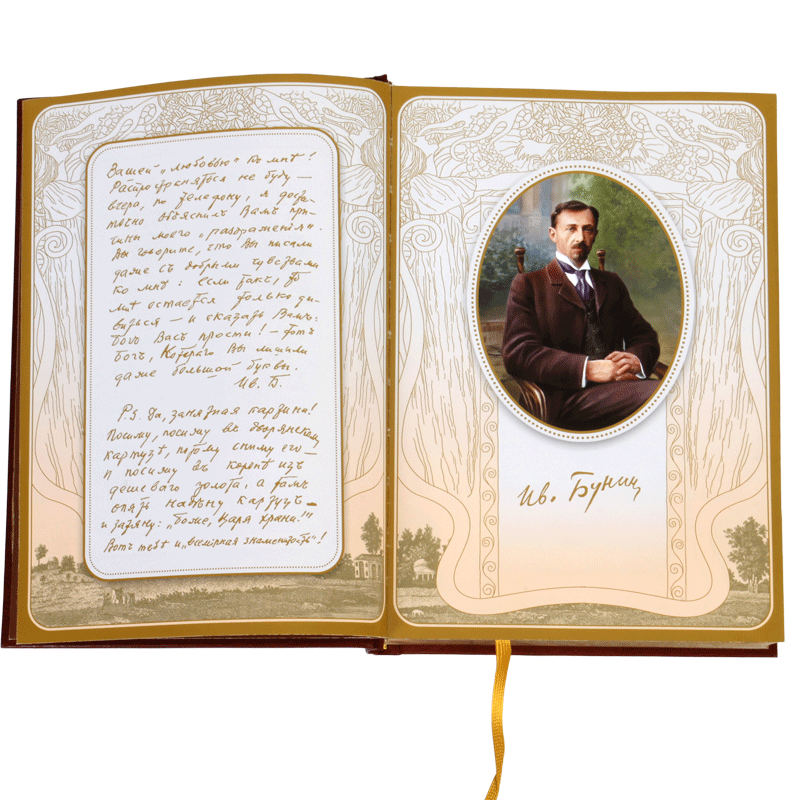 Вашей „любовью" ко мнѣ!
Распространяться не буду —
вчера, по телефону, я доста-
точно объяснилъ Вамъ при-
чины моего „раздраженiя".
Вы говорите, что Вы писали
даже съ добрыми чувствами
ко мнѣ: если такъ, то
мнѣ остается только ди-
виться — и сказать Вамъ:
Богъ Васъ прости! — тотъ
богъ, Котораго Вы лишили
даже большой буквы.
Ив. Б.
P.S. Да, занятная картина!
Посижу, посижу въ дворянскомъ
картузѣ, потомъ сниму его —
и посижу въ
дешеваго золота, а тамъ
опять надѣну картузъ —
и затяну: „Боже, Царя храни!"
Вотъ тебѣ и „всемiрная знаменитость"!
Ив. Бунин